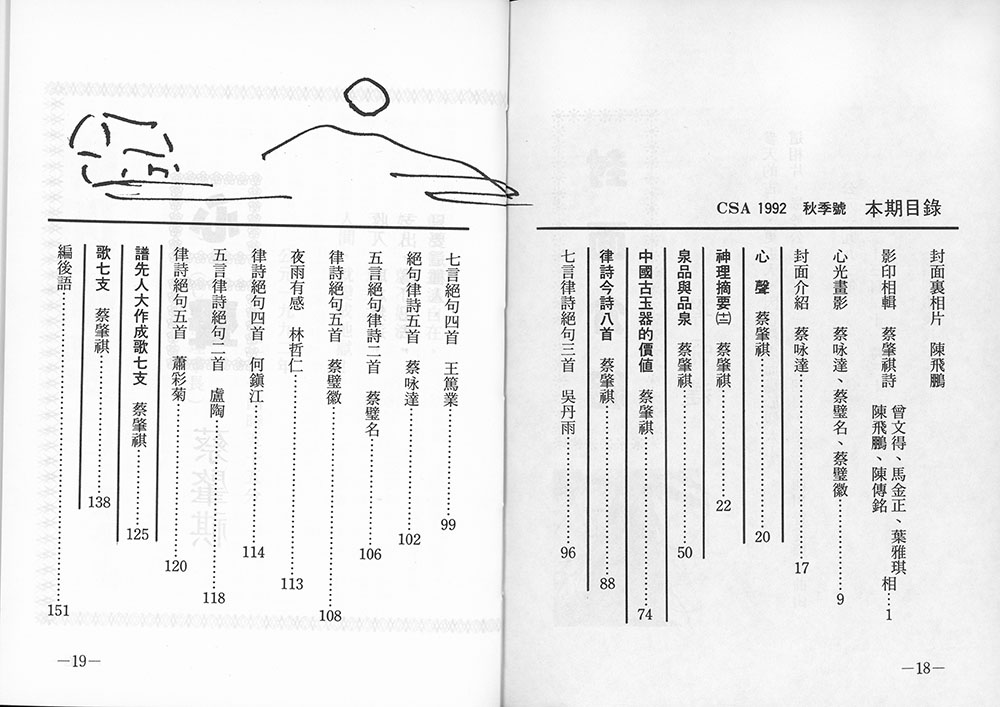 CSA 1992　秋季號　本期目錄
封面裏相片　陳飛鵬
影印相輯　蔡肇祺詩　曾文得、馬金正、葉雅琪
陳飛鵬、陳傳銘　相…1
心光畫影　蔡咏達、蔡璧名、蔡璧徽………9
封面介紹　蔡咏達………17
心　聲　蔡肇祺………20
神理摘要(廿)　蔡肇祺………22
泉品與品泉　蔡肇祺………50
中國古玉器的價値　蔡肇祺………74
律詩今詩八首　蔡肇祺………88
七言律詩絕句三首　吳丹雨………96
—18—
七言絕句四首　王篤業………99
絕句律詩五首　蔡咏達………102
五言絕句律詩二首　蔡璧名………106
律詩絕句五首　蔡璧徽………108
夜雨有感　林哲仁………113
律詩絕句四首　何鎭江………114
五言律詩絕句二首　盧陶………118
律詩絕句五首　蕭彩菊………120
譜先人大作成歌七支　蔡肇祺………125
歌七支　蔡肇祺………138
編後語………151
—19—